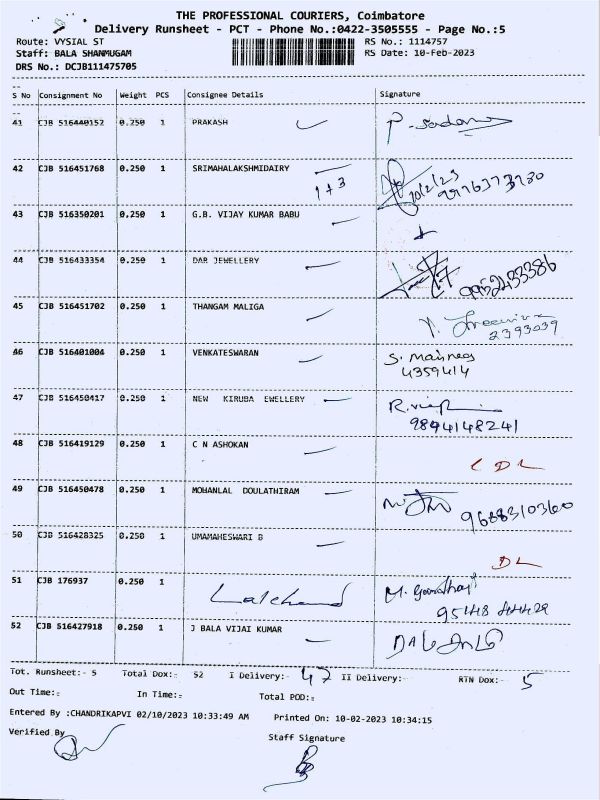 THE PROFESSIONAL COURIERS, Coimbatore
Delivery Runsheet - PCT - Phone No.:0422-3505555 - Page No.:5
Route: VYSIAL ST RS No.: 1114757
Staff: BALA SHANMUGAM RS Date: 10-Feb-2023
DRS No.: DCJB111475705
S No Consignment No Weight PCS Consignee Details Signature
41 CJB 516440152 0.250 1 PRAKASH
42 CJB 516451768 0.250 1 SRIMAHALAKSHMIDAIRY 1+3 10/2/23
43 CJB 516350201 0.250 1 G.B. VIJAY KUMAR BABU
44 CJB 516433354 0.250 1 DAR JEWELLERY 9952433386
45 CJB 516451702 0.250 1 THANGAM MALIGA
2393039
46 CJB 516401004 0.250 1 VENKATESWARAN S.
4359414
47 CJB 516450417 0.250 1 NEW KIRUBA EWELLERY
9894148241
48 CJB 516419129 0.250 1 C N ASHOKAN CDL
49 CJB 516450478 0.250 1 MOHANLAL DOULATHIRAM 9688310360
50 CJB 516428325 0.250 1 UMAMAHESWARI B DL
51 CJB 176937 0.250 1 Lalchand M.
52 CJB 516427918 0.250 1 J BALA VIJAI KUMAR
Tot. Runsheet:- 5 Total Dox:- 52 I Delivery:- 47 II Delivery:- RTN Dox:- 5
Out Time:- In Time:- Total POD:-
Entered By :CHANDRIKAPVI 02/10/2023 10:33:49 AM Printed On: 10-02-2023 10:34:15
Verified By Staff Signature